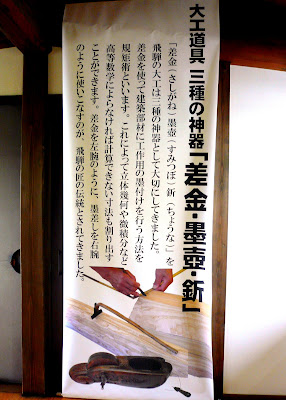 大工道具 三種の神器「差金・墨壺・釿」
「差金(さしがね)墨壺(すみつぼ)釿(ちょうな)」を
飛騨の大工は三種の神器として大切にしてきました。
差金を使って建築部材に工作用の墨付けを行う方法を
規矩術といいます。これによって立体幾何や微積分など
高等数学によらなければ計算できない寸法も割り出す
ことができます。差金を左腕のように、墨差しを右腕
のように使いこなすのが、飛騨の匠の伝統とされてきました。